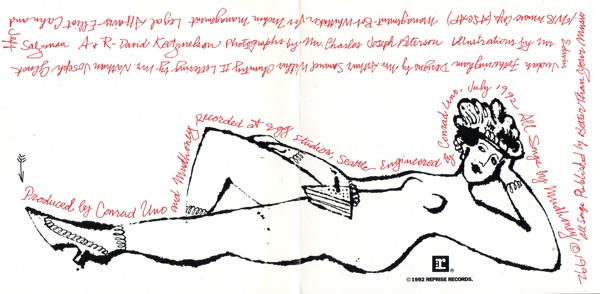 Produced by Conrad Uno and Mudhoney Recorded at Egg Studios, Seattle Engineered by Conrad Uno, July 1992 All Songs by Mudhoney ©1992
All Songs Published by Better Than Your Music
/WB Music Corp (ASCAP) Management-Bob Whittaker for Indian Management Legal Affairs-Elliot Cahn and
Jeff Salzman A+R-David Katznelson Photographs by Mr. Charles Joseph Peterson Illustrations by Mr. Edwin
Judah Fotheringham Designs by Mr. Arthur Samuel Wilbur Chantry II Lettering by Mr. Nathan Joseph Gluck
R
reprise
©1992 REPRISE RECORDS.